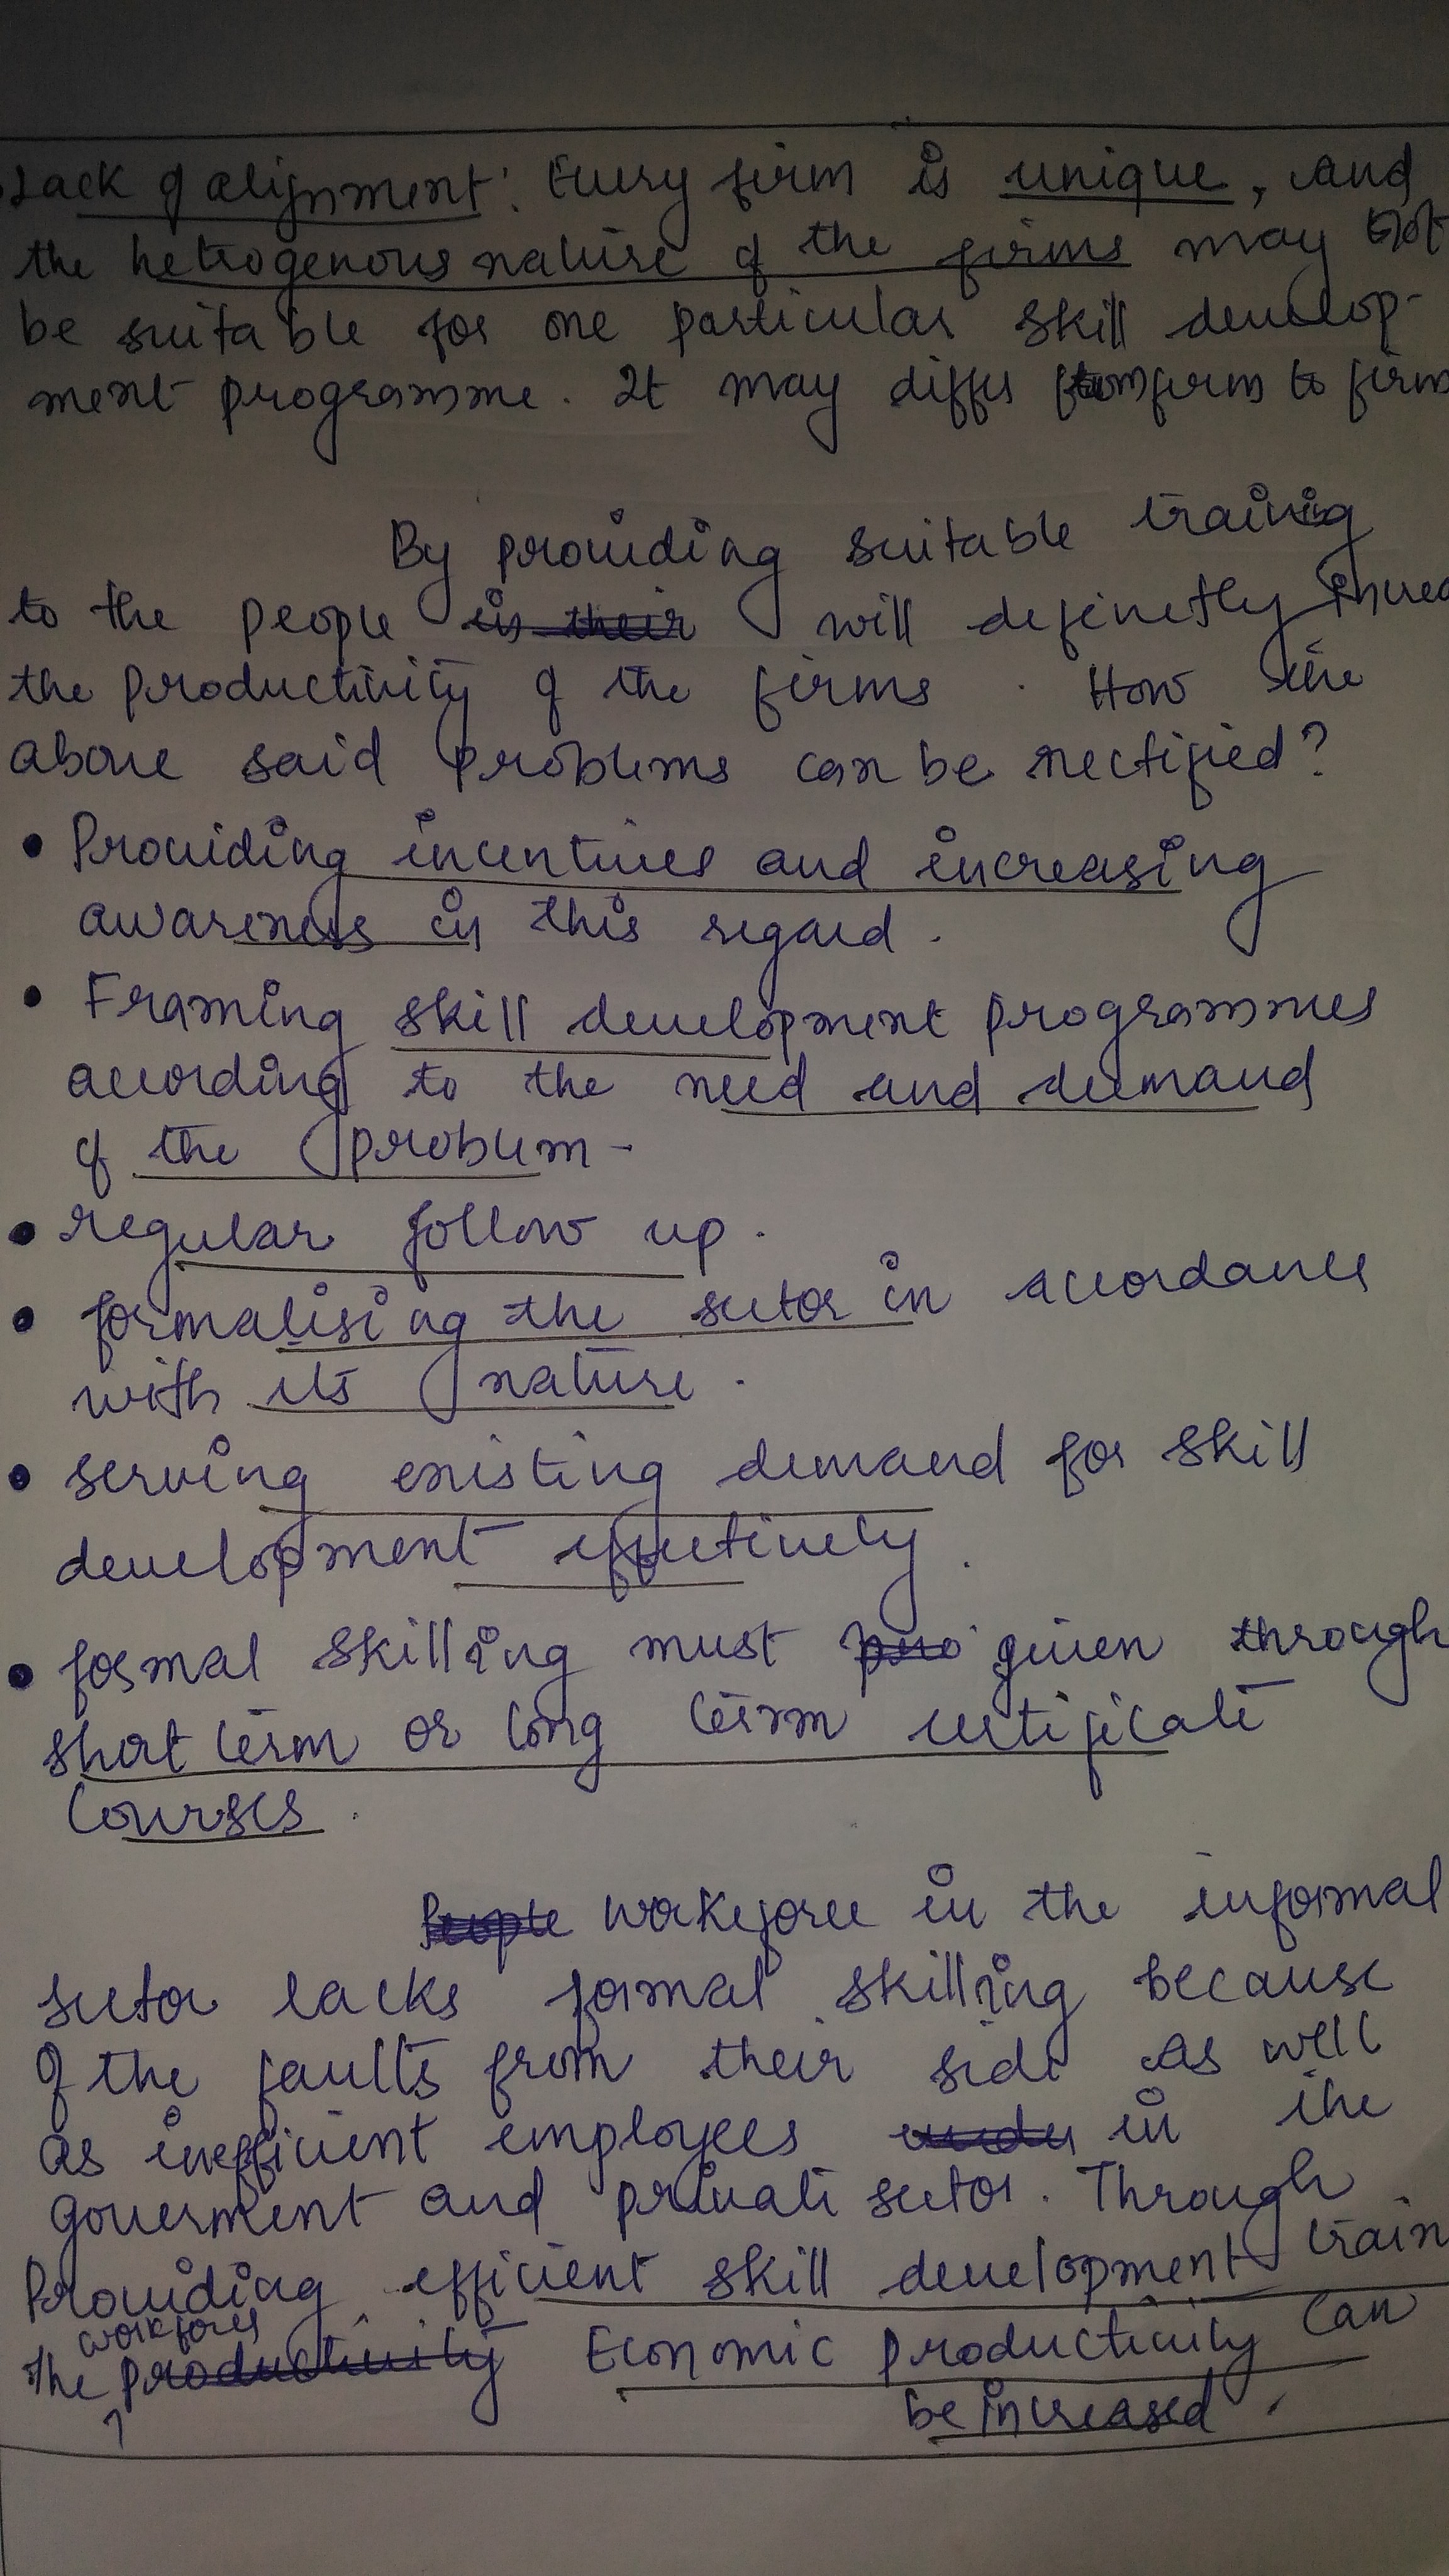 Lack of alignment: Every firm is unique, and
the hetrogenous nature of the firms may not
be suitable for one particular skill develop-
ment programme. It may differ from firm to firm
By providing suitable training
to the people will definetly
the productivity of the firms. How the
above said problems can be rectified?
• Providing incentives and increasing
awareness in this regard.
• Framing skill development programmes
according to the need and demand
of the problem -
• regular follow up.
• formalising the sector in accordance
with its nature.
• serving existing demand for skill
development effectively.
• formal skilling must given through
short term or long term certificate
courses.
workforce in the informal
sector lacks formal skilling because
of the faults from their side as well
as inefficient employees in the
government and private sector. Through
Providing efficient skill development train
workforces
The Economic productivity can
be increased.